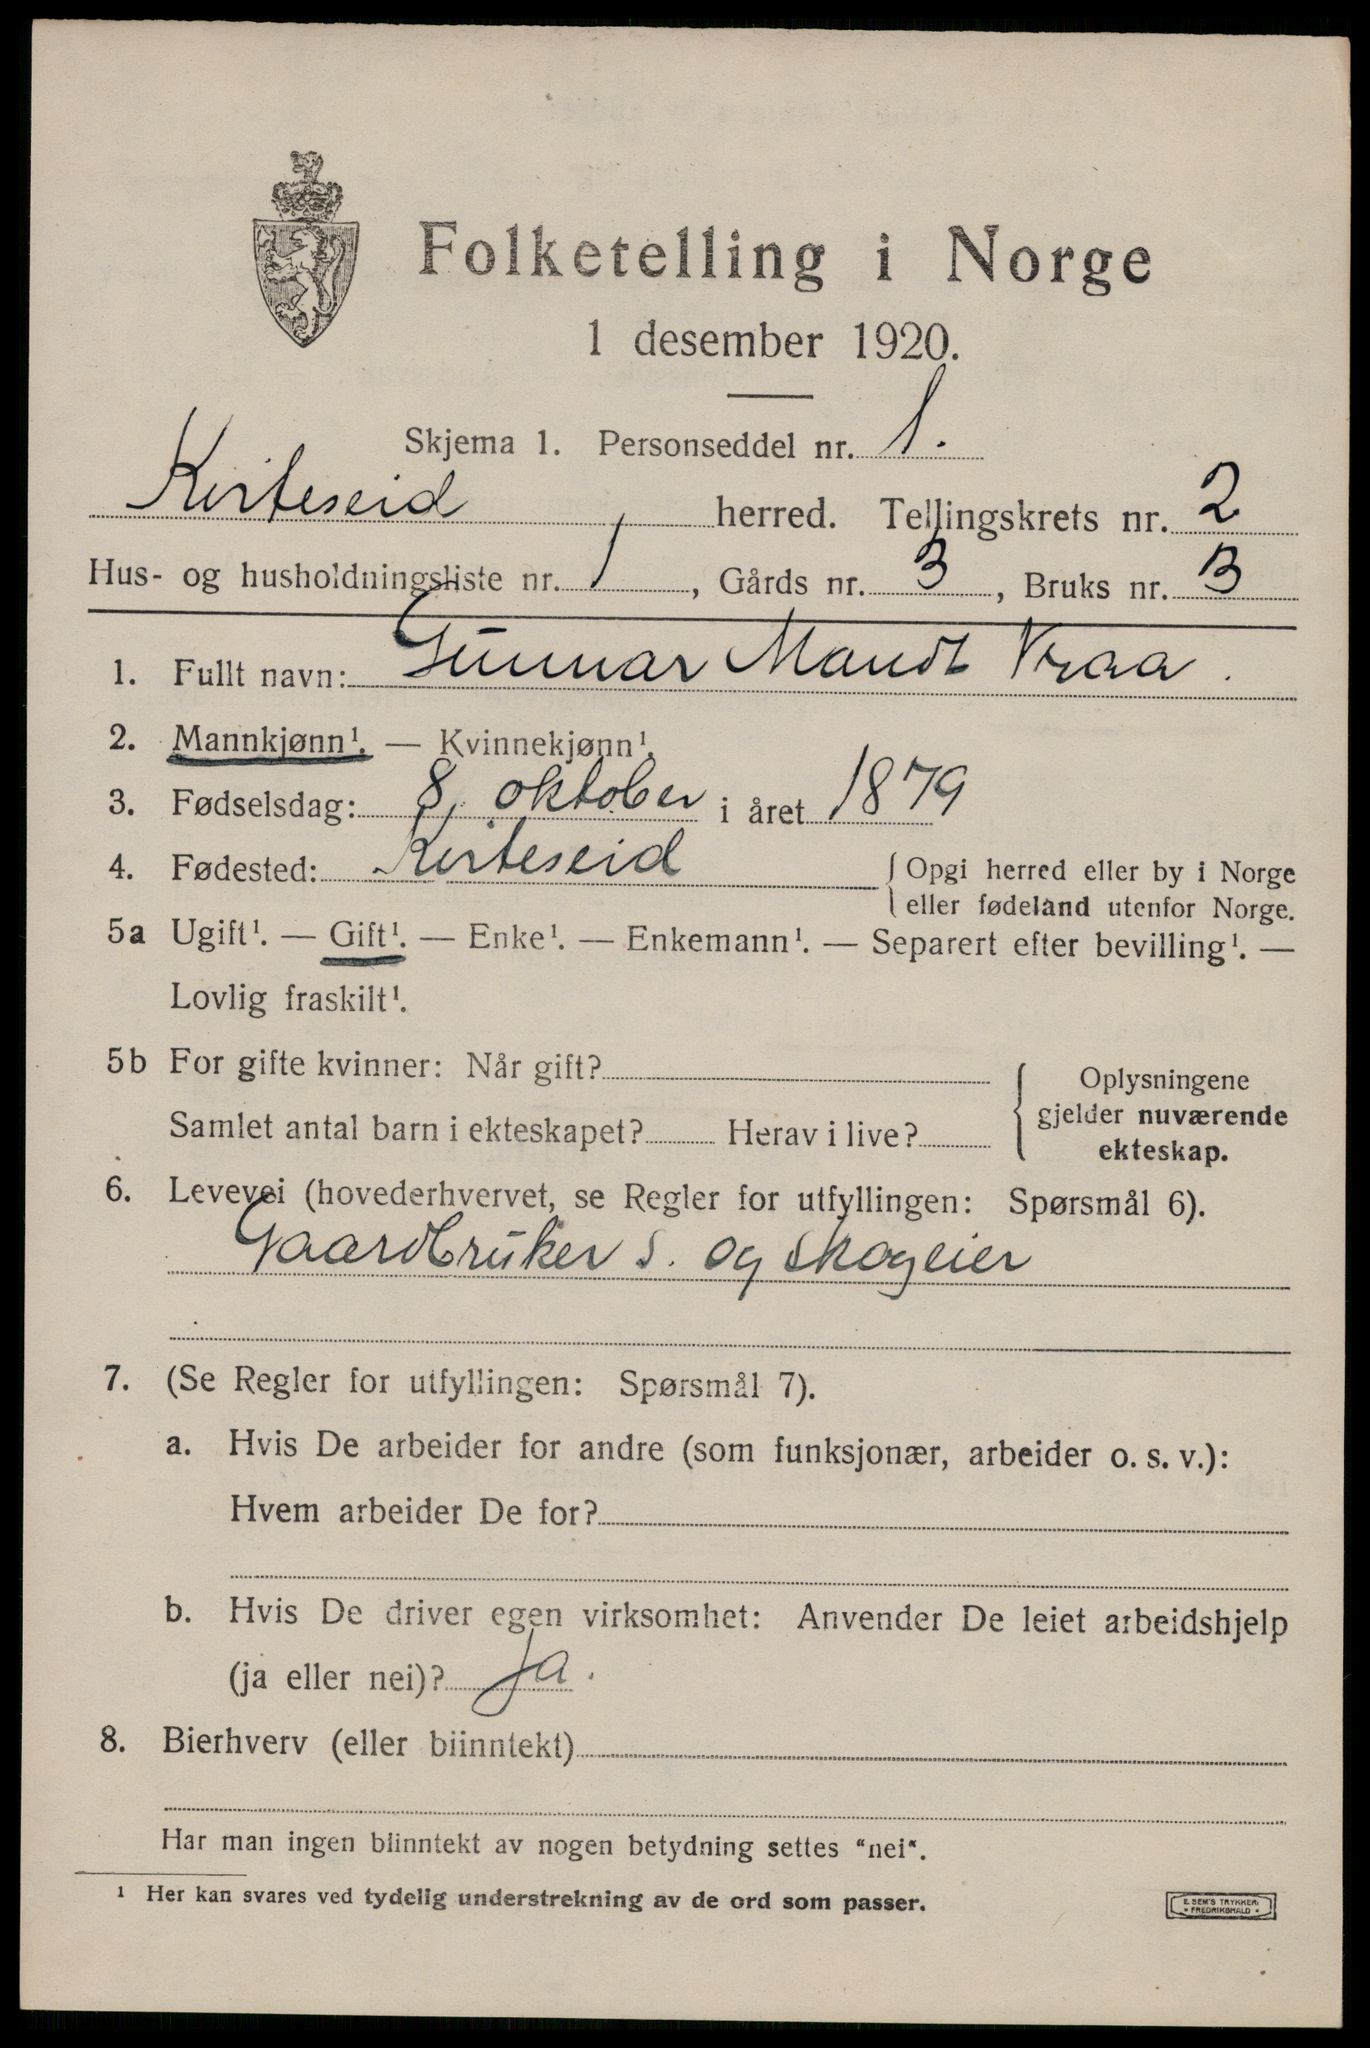 Folketelling i Norge
1 desember 1920.
Skjema 1. Personseddel nr. 1.
Kviteseid herred. Tellingskrets nr. 2
Hus- og husholdningsliste nr. 1, Gårds nr. 3, Bruks nr. 3
1. Fullt navn: Gunnar Mandt Vraa.
2. Mannkjønn¹. — Kvinnekjønn¹.
3. Fødselsdag: 8. oktober i året 1879
4. Fødested: Kviteseid {Opgi herred eller by i Norge
eller fødeland utenfor Norge.
5a Ugift¹. — Gift¹. — Enke¹. — Enkemann¹. — Separert efter bevilling¹. —
Lovlig fraskilt¹.
5b For gifte kvinner: Når gift?
Samlet antal barn i ekteskapet? Herav i live?
{Oplysningene
gjelder nuværende
ekteskap.
6. Levevei (hovederhvervet, se Regler for utfyllingen: Spørsmål 6).
Gaardbruker s. og skogeier
7. (Se Regler for utfyllingen: Spørsmål 7).
a. Hvis De arbeider for andre (som funksjonær, arbeider o. s. v.):
Hvem arbeider De for?
b. Hvis De driver egen virksomhet: Anvender De leiet arbeidshjelp
(ja eller nei)? Ja.
8. Bierhverv (eller biinntekt)
Har man ingen biinntekt av nogen betydning settes "nei".
¹ Her kan svares ved tydelig understrekning av de ord som passer.
E. SEM'S TRYKKERI
FREDRIKSHALD